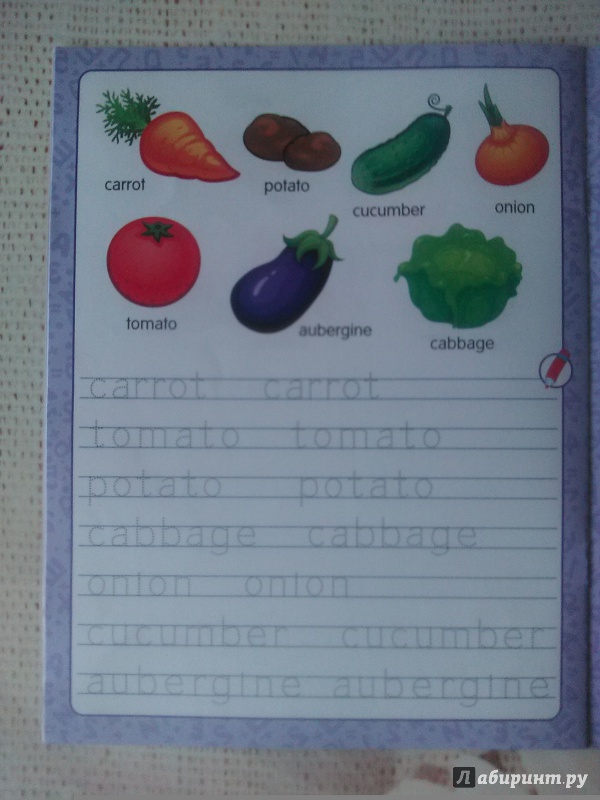 carrot
potato
cucumber
onion
tomato
aubergine
cabbage
carrot carrot
tomato tomato
potato potato
cabbage cabbage
onion onion
cucumber cucumber
aubergine aubergine
Лабиринт.ру